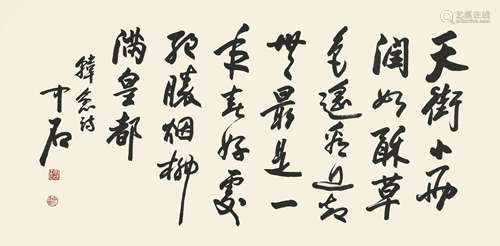 天街小雨
润如酥草
色遥看近却
无最是一
年春好处
绝胜烟柳
满皇都
韩愈诗
中石